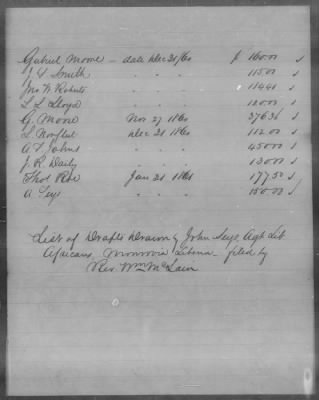 Gabriel Moore – date Dec 31/60 $ 160.00 s
J W Smith " " " 115.00 s
Jno N Roberts " " " 114.41 s
L L Lloyd " " " 120.00 s
G. Moore Nov 27 1860 376.36 s
L Norfleet Dec 31 1860 112.00 s
A F Johns " " " 450.00 s
J. R. Daily " " " 130.00 s
Thos Roe Jan 31 1861 177.50 s
A 150.00 s
List of Drafts Drawn by John Seys, Agt Lib.
Africans, Monrovia Liberia – filed by
Rev. Wm McLain